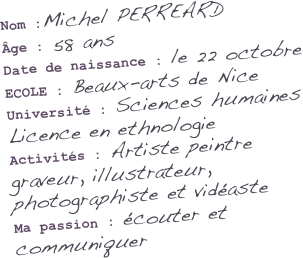 Nom :Michel PERREARD
Âge : 58 ans
Date de naissance : le 22 octobre
ECOLE : Beaux-arts de Nice
Université : Sciences humaines
Licence en ethnologie
Activités : Artiste peintre
graveur, illustrateur,
photographiste et vidéaste
Ma passion : écouter et
communiquer